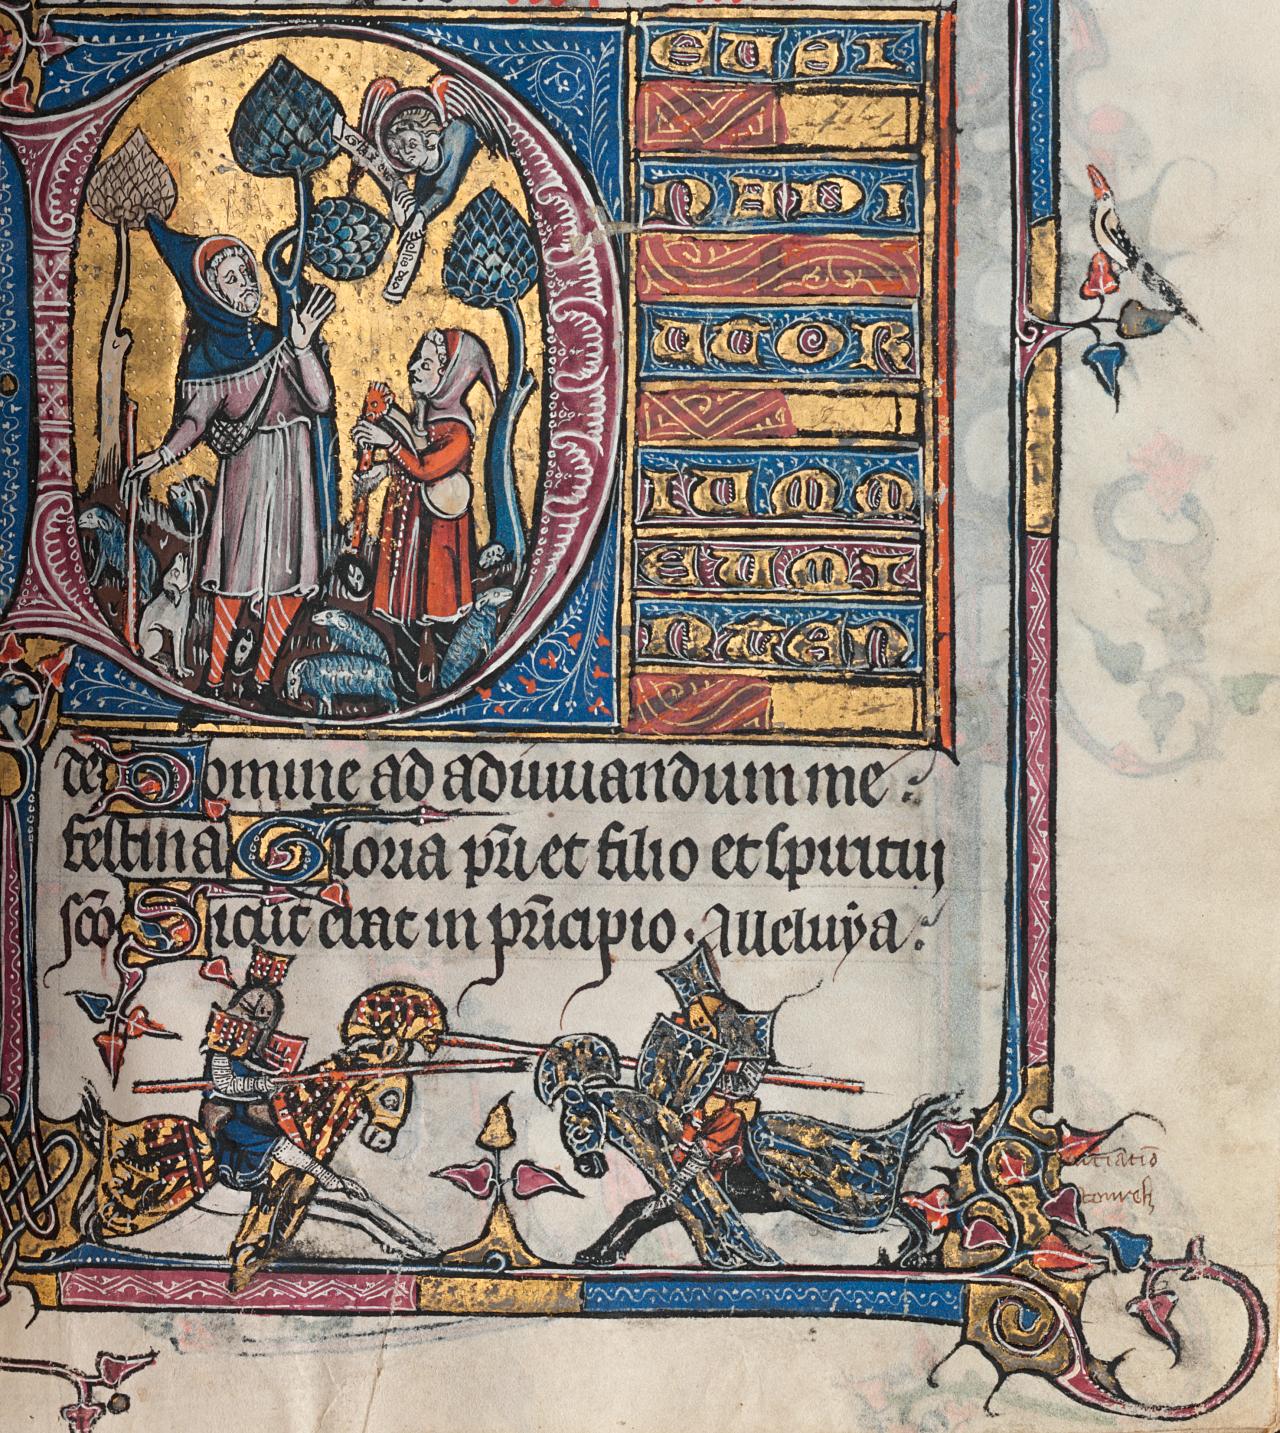 DEUSI
NADI
UTOR
IUMM
EUMI
NTEN
de Domine ad adiuuandum me :
festina Gloria pr̄i et filio et spiritui
sc̄o Sicut erat in pr̄icipio. Alleluya :